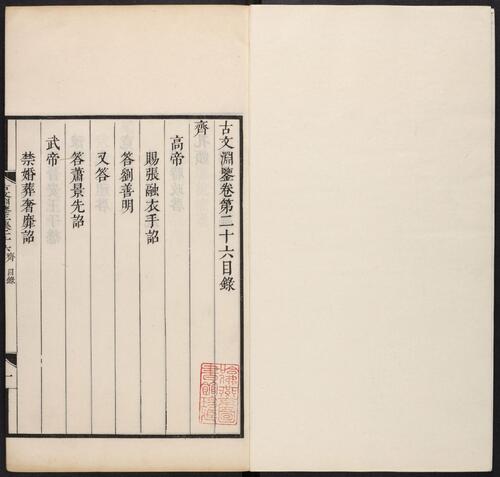 古文淵鑒卷第二十六目錄
齊
高帝
賜張融衣手詔
答劉善明
又答
答蕭景先詔
武帝
禁婚葬奢靡詔
古文淵鑒卷二十六 齊 目錄
一